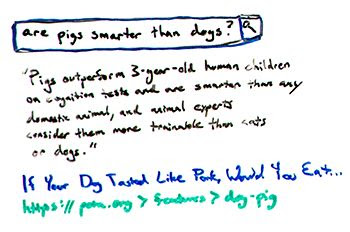 are pigs smarter than dogs?
"Pigs outperform 3-year-old human children
on cognition tests and are smarter than any
domestic animal, and animal experts
consider them more trainable than cats
or dogs."
If Your Dog Tasted Like Pork, Would You Eat...
https://peta.org > features > dog-pig